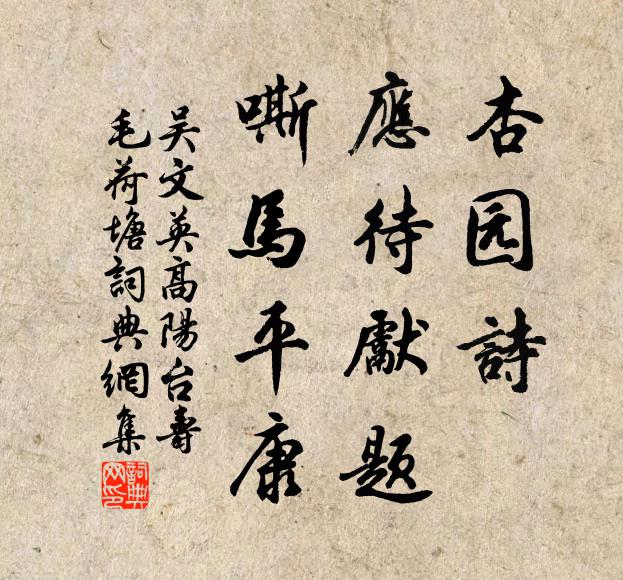 杏园詩
應待獻题
嘶馬平康
吴文英高陽台壽
毛荷塘詞典網集
詞典网印